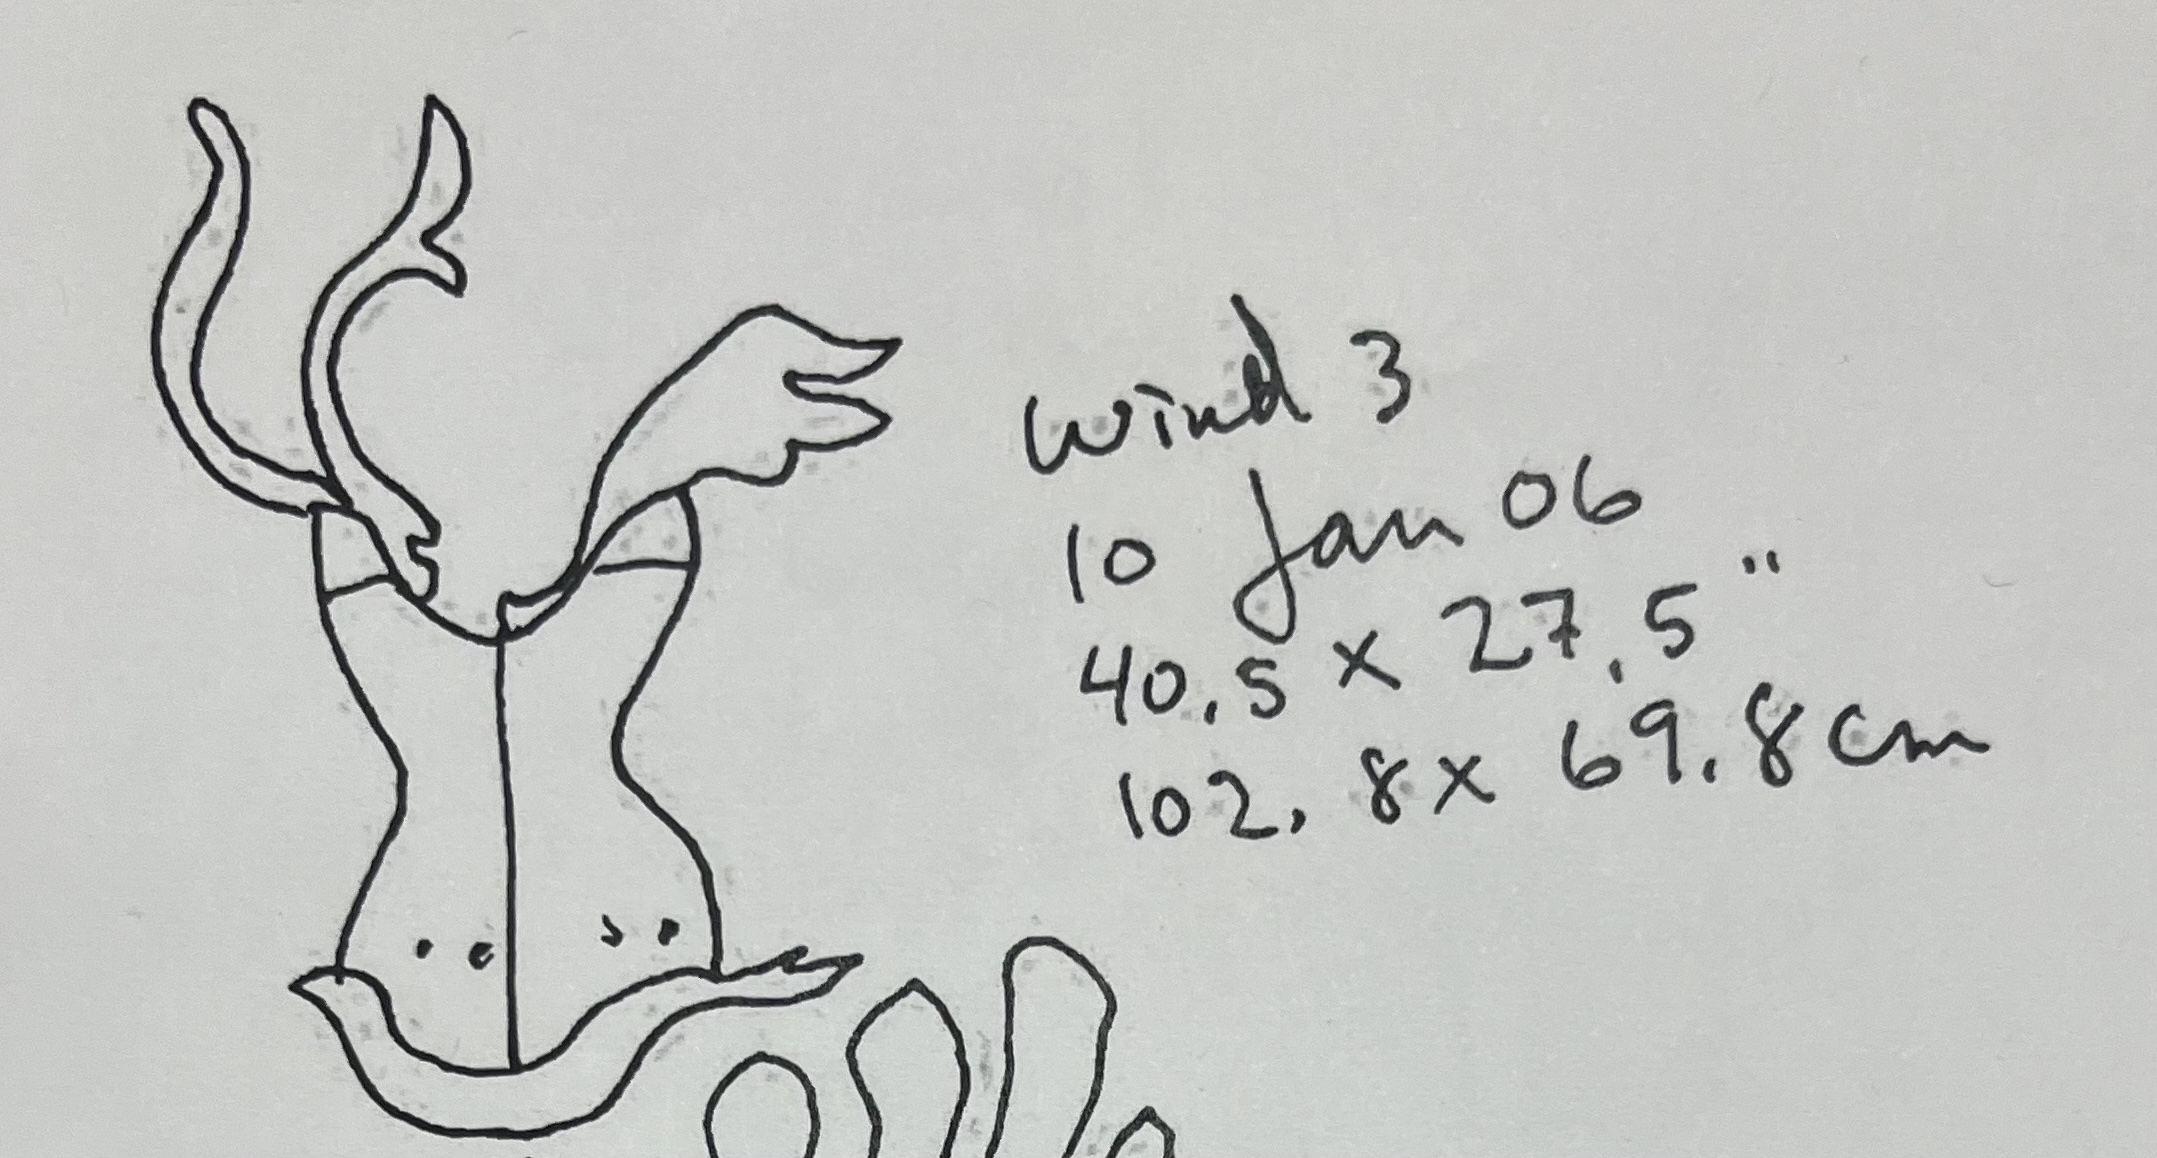 wind 3
10 Jan 06
40.5 x 27.5"
102.8 x 69.8 cm